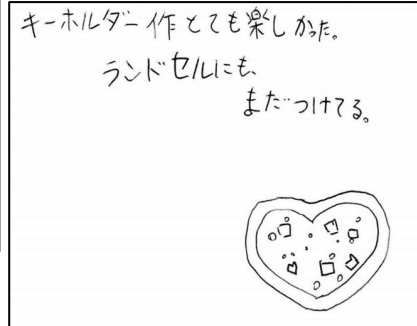 キーホルダー作とても楽しかった。
ランドセルにも、
まだつけてる。